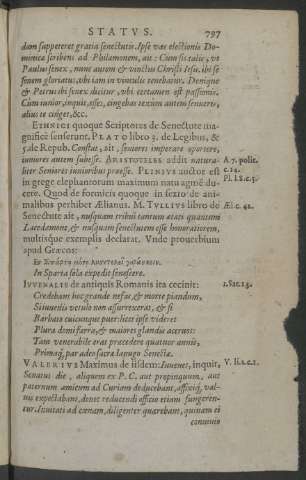 STATVS. 797
dam suppeteret gratia senectutis. Ipse vas electionis Do-
minica scribens ad Philemonem, ait: Cum sis talis, vt
Paulus senex, nunc autem & vinctus Christi Iesu. ibi se
senem gloriatus, vbi iam in vinculis tenebatur. Denique
& Petrus ibi senex dicitur, vbi certamen est passionis.
Cum iunior, inquit, esses, cingebas te: cum autem senueris,
alius te cinget, &c.
ETHNICI quoque Scriptores de Senectute ma-
gnifice senserunt. PLATO libro 3. de Legibus, &
5. de Repub. Constat, ait, seniores imperare oportere,
iuniores autem subesse. ARISTOTELES addit natura-
liter Seniores iunioribus praeesse. PLINIVS auctor est
A 7. polit.
c. 14.
Pl. l. 8. c. 5.
in grege elephantorum maximum natu agmē duce-
re. Quod de formicis quoque in serzo de ani-
malibus perhibet Ælianus. M. TVLLIVS libro de
Æl. c. 42.
Senectute ait, nusquam tribui tantum ætati quantum
Lacedæmone, & nusquam senectutem esse honoratiorem,
multisque exemplis declarat. Vnde prouerbium
apud Græcos:
Εν Σπάρτᾳ μόνῃ λυσιτελεῖ γηράσκειν.
In Sparta sola expedit senescere.
IVVENALIS de antiquis Romanis ita cecinit:
1. Sat. 13.
Credebant hoc grande nefas, & morte piandum,
Si iuuenis vetulo non assurrexerat, & si
Barbato cuicunque puer: licet ipse videret
Plura domi farra, & maiores glandis aceruos:
Tam venerabile erat præcedere quatuor annis,
Primaq́; par adeo sacræ lanugo Senectæ.
VALERIVS Maximus de iisdem: Iuuenes, inquit,
V. li. 2. c. 1.
Senatus die, aliquem ex P. C. aut propinquum, aut
paternum amicum ad Curiam deducebant, affixiq́; val-
uis expectabant, donec reducendi officio etiam fungeren-
tur. Inuitati ad cœnam, diligenter quærebant, quinam ei
conuiuio